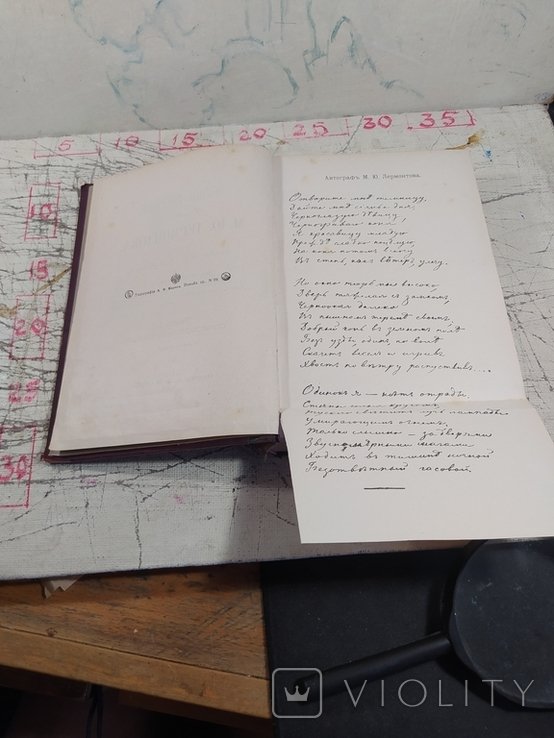 5 10 15 20 25 30 35
10
15
20
25
30
Автографъ М. Ю. Лермонтова.
Отворите мнѣ темницу,
Дайте мнѣ сіянье дня,
Черноглазую дѣвицу,
Черногриваго коня.
Я красавицу младую
Прежде сладко поцѣлую,
На коня потомъ вскочу
Въ степь, какъ вѣтеръ, улечу.
Но окно тюрьмы высоко
Дверь тяжелая съ замкомъ,
Черноокая далеко
Въ пышномъ теремѣ своемъ,
Добрый конь въ зеленомъ полѣ
Безъ узды, одинъ, по волѣ
Скачетъ веселъ и игривъ
Хвостъ по вѣтру распустивъ...
Одинокъ я — нѣтъ отрады.
Стѣны голыя кругомъ,
Тускло свѣтитъ лучъ лампады
Умирающимъ огнемъ;
Только слышно — за дверями
Звучномѣрными шагами
Ходитъ въ тишинѣ ночной
Безотвѣтный часовой.
VIOLITY